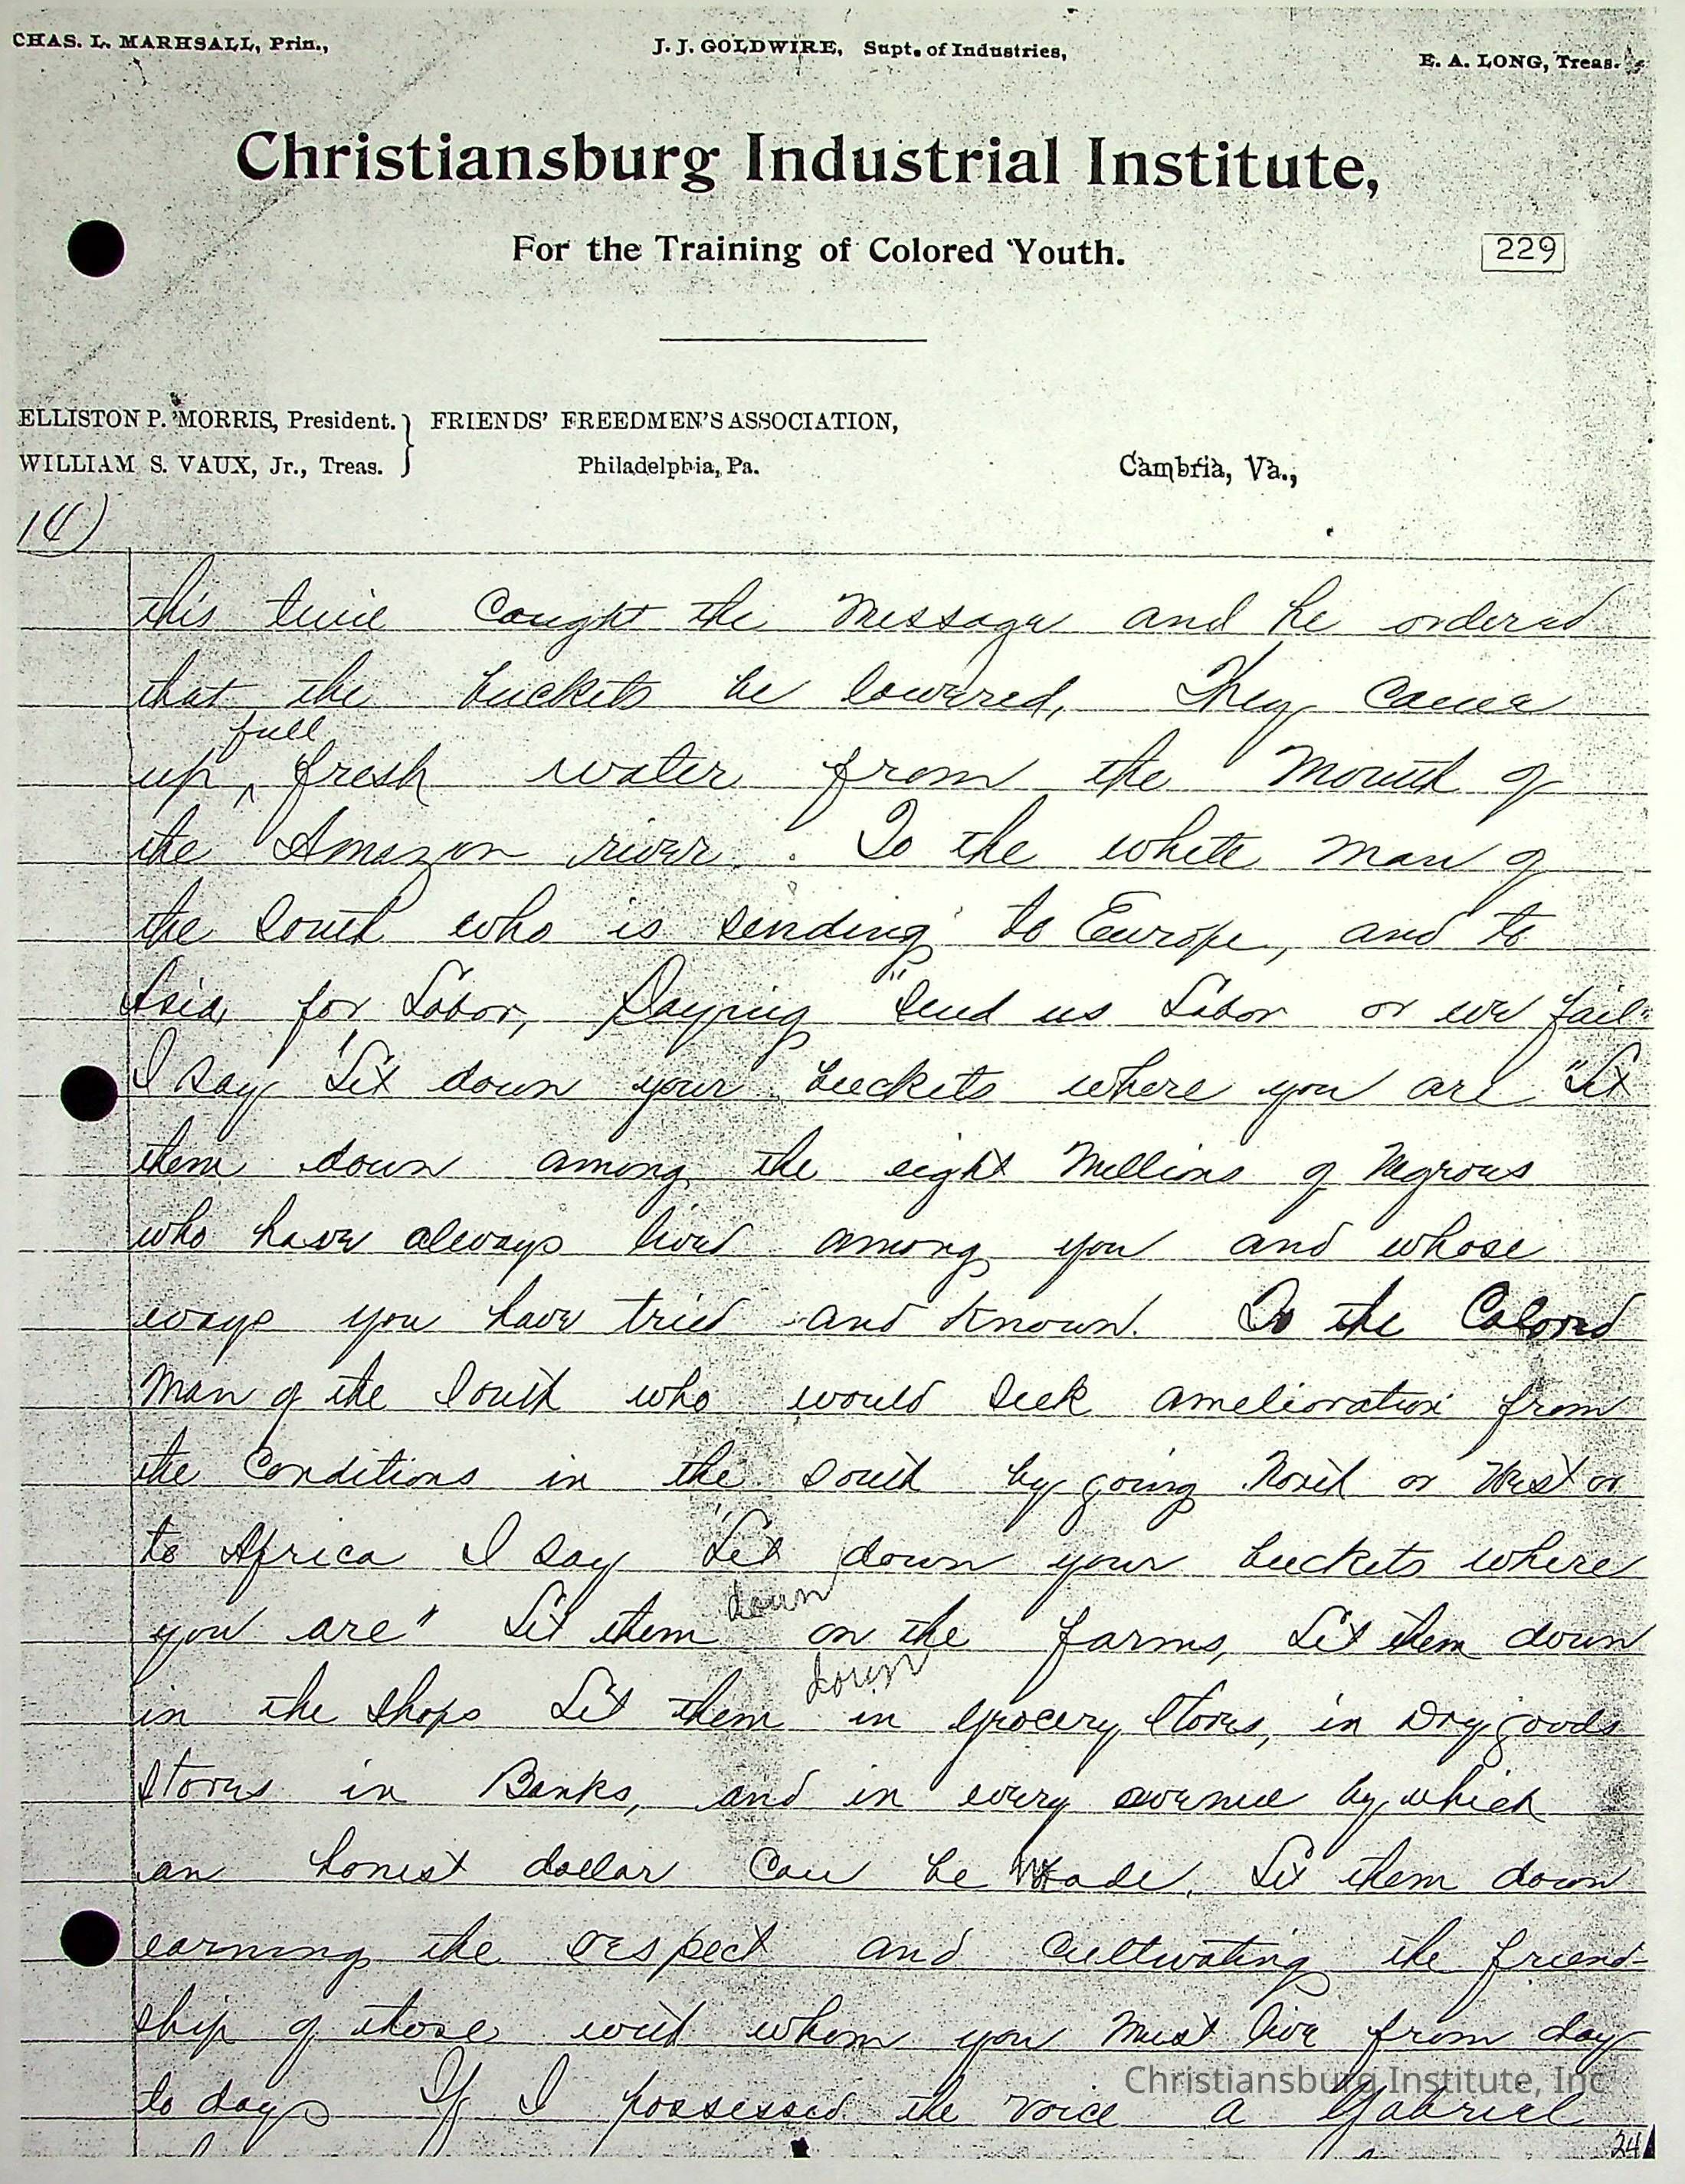 CHAS. L. MARHSALL, Prin.,
J. J. GOLDWIRE, Supt. of Industries,
E. A. LONG, Treas.
Christiansburg Industrial Institute,
For the Training of Colored Youth.
229
ELLISTON P. MORRIS, President. } FRIENDS' FREEDMEN'S ASSOCIATION,
WILLIAM S. VAUX, Jr., Treas. Philadelphia, Pa. Cambria, Va.,
14)
this time Caught the Message and he ordered
that the buckets be lowered, They came
full
up ^ fresh water from the Mouth of
the Amazon river. To the white man of
the South who is sending to Europe, and to
Asia, for Labor, Saying "Send us Labor or we fail"
I say "Let down your buckets where you are" Let
them down among the eight Millions of Negroes
who have always lived among you and whose
ways you have tried and known. To the Colored
Man of the South who would seek amelioration from
the Conditions in the South by going North or West or
to Africa I say "Let down your buckets where
down
you are" Let them on the farms, Let them down
down
in the shops Let them in grocery stores, in Dry goods
stores in Banks, and in every avenue by which
an honest dollar Can be Made. Let them down
earning the respect and Cultivating the friend-
ship of those with whom you Must live from day
to day If I possessed the voice a Gabriel
Christiansburg Institute, Inc
24